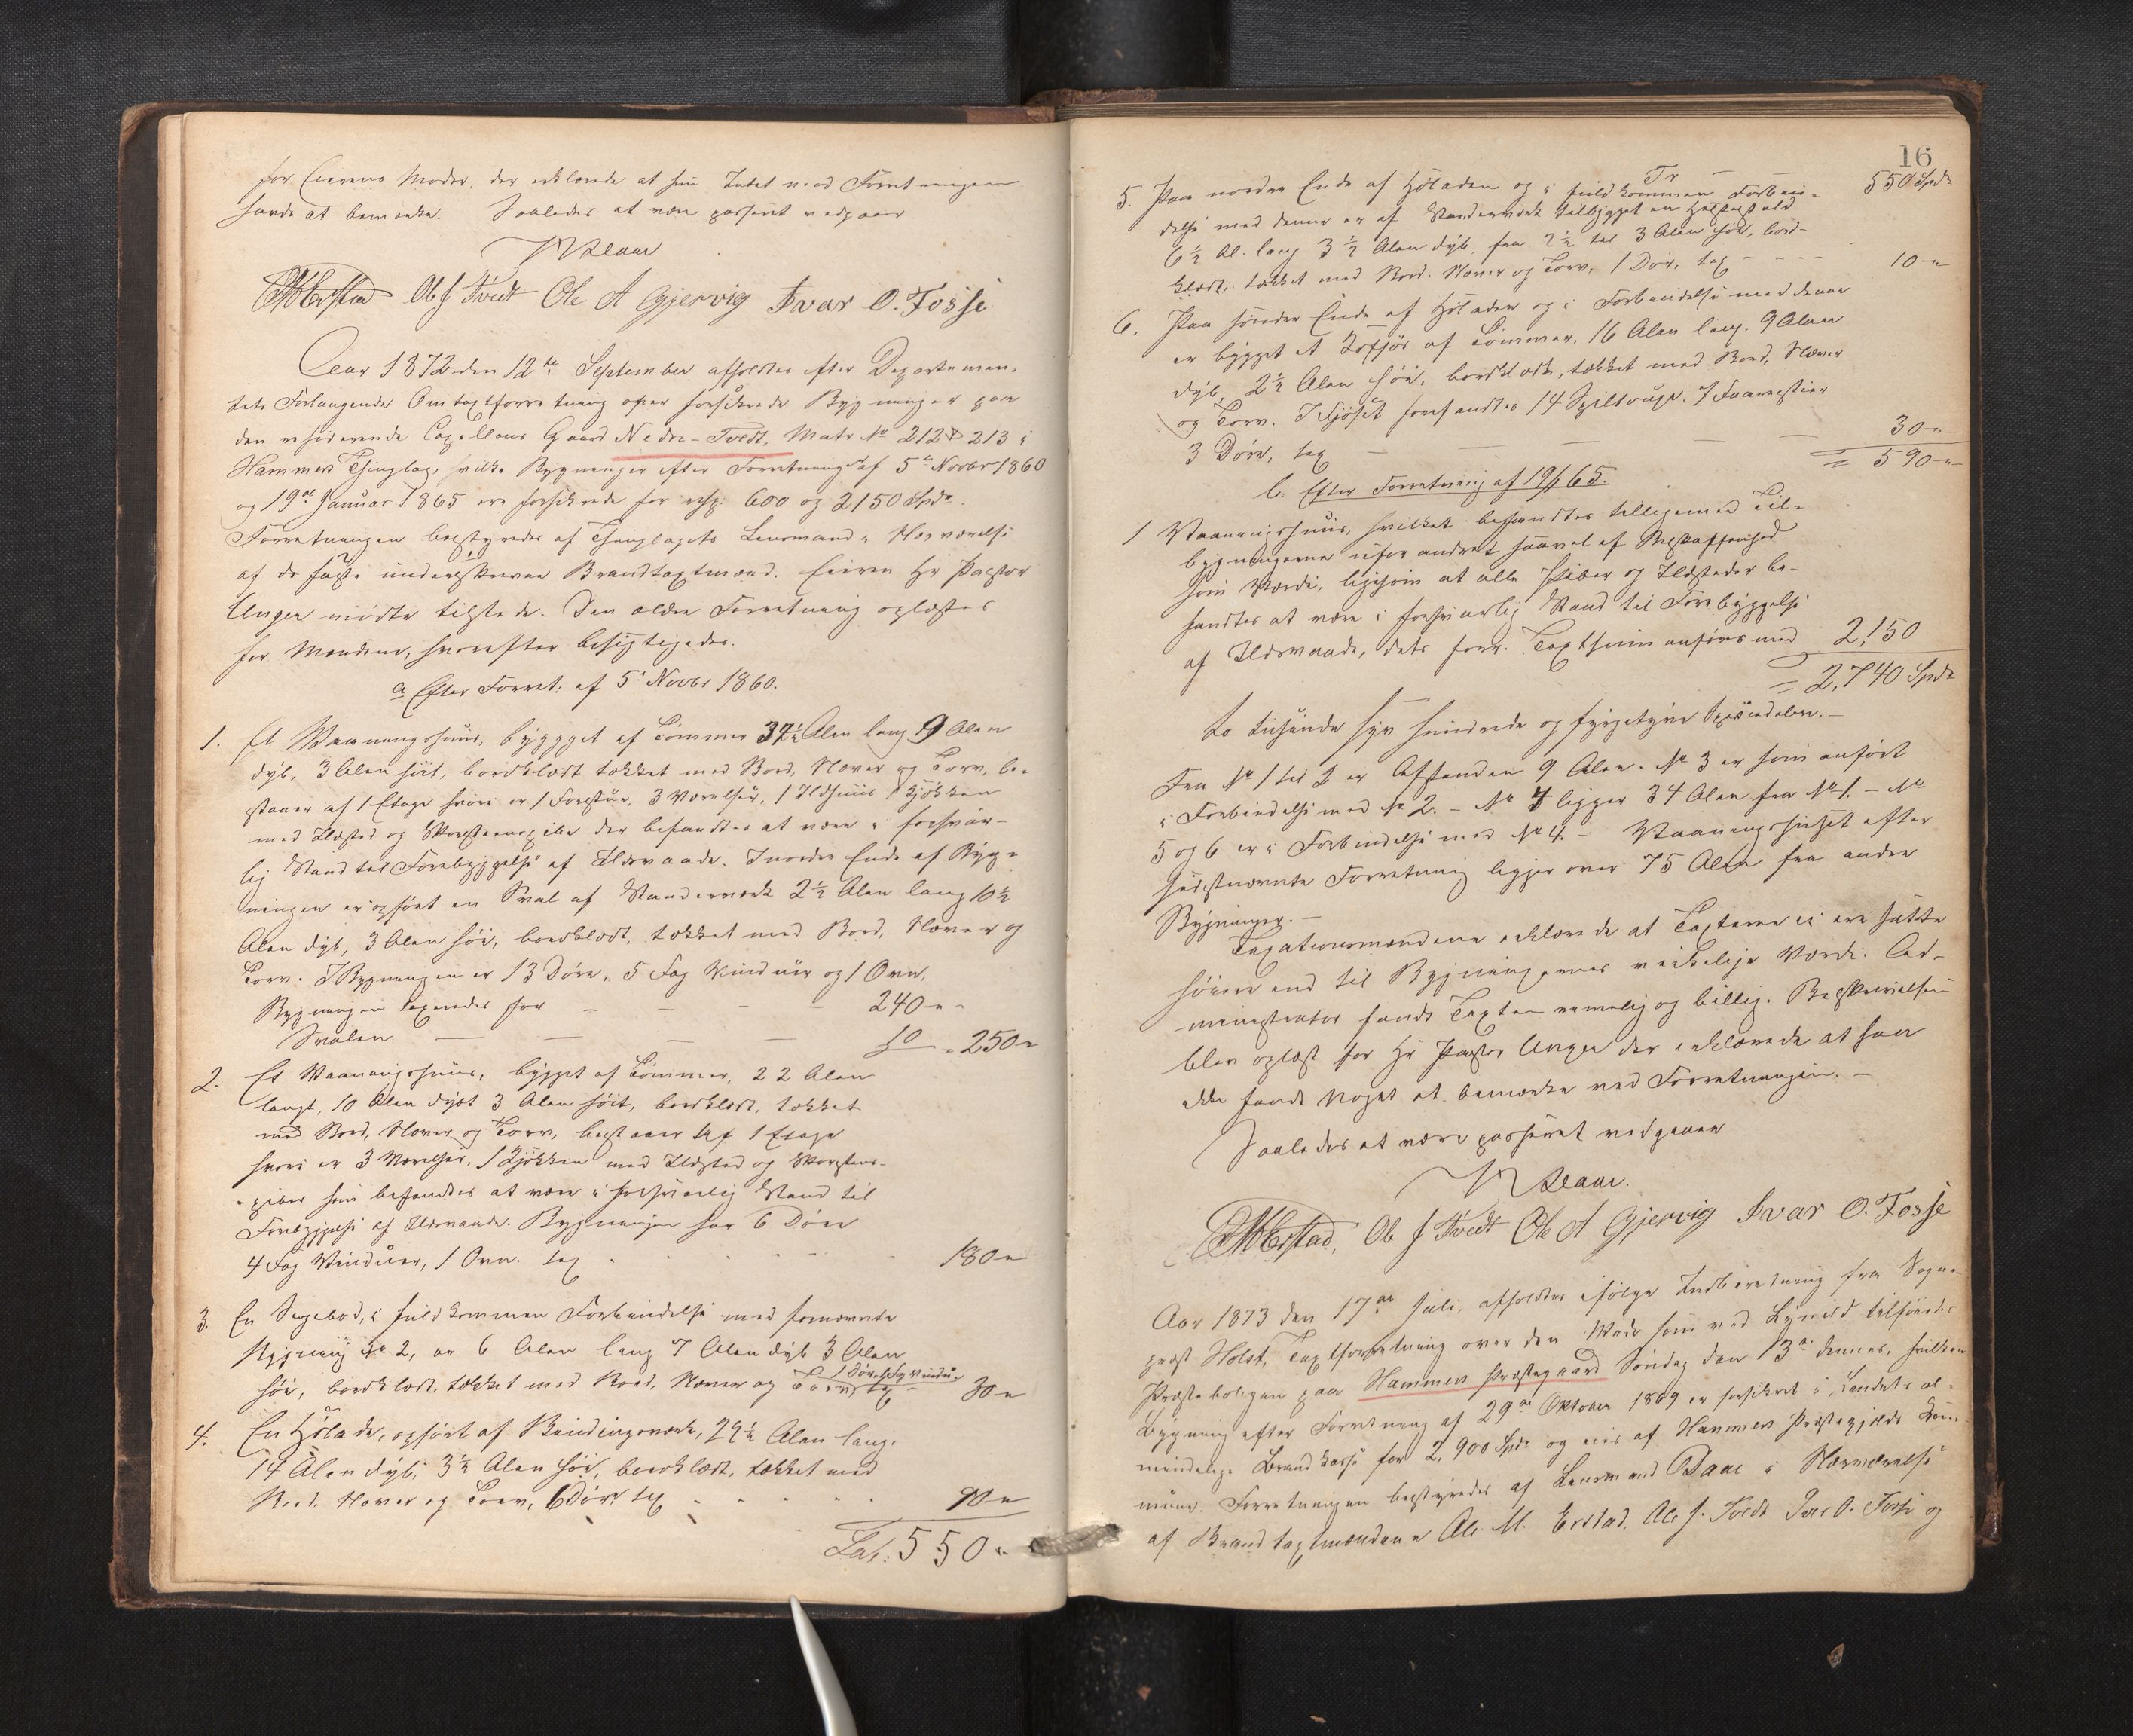 for Eierens Moder, der erklærede at hun Intet mod Forretningen
havde at bemærke. Saaledes at være passeret vedgaaer
Daae
OMErstad Ole J Tvedt Ole A Gjervig Ivar O. Fosse
Aar 1872 den 12te September afholdtes efter Departemen-
tets Forlangende Omtaxtforretning over forsikrede Bygninger paa
den residerende Capellans Gaard Nedre-Tvedt, Matr No 212 & 213 i
Hammers Thinglag, hvilke Bygninger efter Forretninger af 5te Novbr 1860
og 19de Januar 1865 ere forsikrede for resp. 600 og 2150 Spd.
Forretningen bestyredes af Thinglagets Lensmand i Nærværelse
af de faste underskrevne Brandtaxtmænd. Eieren Hr Pastor
Unger mødte tilstede. Den ældre Forretning oplæstes
for Mændene, hvorefter besigtigedes.
a Efter Forret: af 5te Novbr 1860.
1. Et Vaaningshuus, bygget af Tømmer 34½ Alen lang 9 Alen
dyb, 3 Alen høit, bordklædt tækket med Bord, Næver og Torv, be-
staaer af 1 Etage hvori er 1 Forstue, 3 Værelser, 1 Ildhuus 1 Kjøkken
med Ildsted og Skorsteenspibe der befandtes at være i forsvar-
lig Stand til Forebyggelse af Ildsvaade. I nordre Ende af Byg-
ningen er opført en Sval af Standerværk 2½ Alen lang 10½
Alen dyb, 3 Alen høi, bordklædt, tækket med Bord, Næver og
Torv. I Bygningen er 13 Døre, 5 Fag Vinduer og 1 Ovn.
Bygningen taxeredes for — — — 240 "
Svalen — — — — 10 " = 250 "
2. Et Vaaningshuus, bygget af Tømmer, 22 Alen
langt, 10 Alen dybt 3 Alen høit, bordklædt, tækket
med Bord, Næver og Torv, bestaaer af 1 Etage
hvori er 3 Værelser, 1 Kjøkken med Ildsted og Skorsteens-
piber som befandtes at være i forsvarlig Stand til
Forebyggelse af Ildsvaade. Bygningen har 6 Døre
4 Fag Vinduer, 1 Ovn. tax 180 "
3. En Sengebod, i fuldkommen Forbindelse med fornævnte
Bygning No 2, er 6 Alen lang 7 Alen dyb 3 Alen
1 Dør, Fag Vinduer
høi, bordklædt, tækket med Bord, Næver og Torv tax 30 "
4. En Hølade, opført af Bindingsværk, 29½ Alen lang.
14 Alen dyb, 3½ Alen høi, bordklædt, tækket med
Bord, Næver og Torv, 6 Døre tax 90 "
Lat: 550 "
16
Tr — 550 Spd
5. Paa nordre Ende af Høladen og i fuldkommen Forbin-
delse med denne er af Standerværk tilbygget en Hestestald
6½ Al. lang 3½ Alen dyb, fra 2½ til 3 Alen høi, bord-
klædt, tækket med Bord, Næver og Torv, 1 Dør, tax — — — 10 "
6. Paa søndre Ende af Høladen og i Forbindelse med denne
er bygget et Kofjøs af Tømmer, 16 Alen lang. 9 Alen
dyb, 2½ Alen høi, bordklædt, tækket med Bord, Næver
og Torv. I Fjøset forefandtes 14 Spiltouge. 7 Faarestier
3 Døre, tax — — — 30 "
= 590 "
b. Efter Forretning af 19/1 65.
1 Vaaningshuus, hvilket befandtes tilligemed Til-
bygningerne uforandret saavel af Beskaffenhed
som Værdi, ligesom at alle Piber og Ildsteder be-
fandtes at være i forsvarlig Stand til Forebyggelse
af Ildsvaade, dets forr. Taxtsum anføres med 2,150
= 2,740 Spd
to tusinde syv hundrede og fyrgetyve Speciedaler. —
Fra No 1 til 2 er Afstanden 9 Alen. No 3 er som anført
i Forbindelse med No 2. — No 4 ligger 34 Alen fra No 1. — No
5 og 6 er i Forbindelse med No 4. — Vaaningshuset efter
sidstnævnte Forretning ligger over 75 Alen fra andre
Bygninger. —
Taxationsmændene erklærede at Taxterne ei ere satte
høiere end til Bygningernes virkelige Værdi. Ad-
ministrator fandt Taxten rimelig og billig. Beskrivelsen
blev oplæst for Hr Pastor Unger der erklærede at han
ikke fandt Noget at bemærke ved Forretningen. —
Saaledes at være passeret vedgaaer
Daae.
OMErstad, Ole J Tvedt Ole A Gjervig Ivar O. Fosse
Aar 1873 den 17de Juli, afholdtes ifølge Indberetning fra Sogne-
præst Holst, Taxtforretning over den Skade som ved Lynild tilføiedes
Præsteboligen paa Hammers Præstegaard Søndag den 13de dennes, hvilken
Bygning efter Forretning af 29de Oktober 1869 er forsikret i Landets al-
mindelige Brandkasse for 2,900 Spd og eies af Hammers Præstegjelds Kom-
mune. Forretningen bestyredes af Lensmand Daae i Nærværelse
af Brandtaxtmændene Ole M. Erstad, Ole J. Tvedt Ivar O. Fosse og